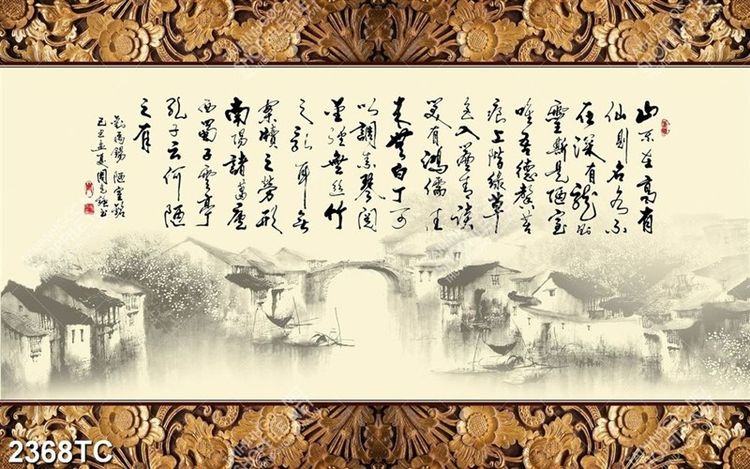 山不在高有
仙則名水不
在深有龍則
靈斯是陋室
唯吾德馨苔
痕上階綠草
色入簾青談
笑有鴻儒往
來無白丁可
以調素琴閱
金經無絲竹
之亂耳無
案牘之勞形
南陽諸葛廬
西蜀子雲亭
孔子云何陋
之有
劉禹錫 陋室銘
己丑孟夏周
2368TC